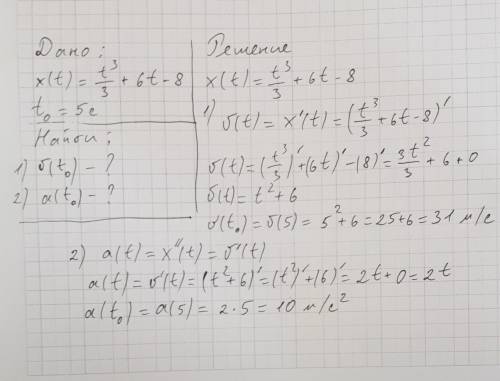 Дано:
x(t) = t³/3 + 6t - 8
t₀ = 5с
Найти:
1) v(t₀) - ?
2) a(t₀) - ?
Решение
x(t) = t³/3 + 6t - 8
1) v(t) = x'(t) = (t³/3 + 6t - 8)'
v(t) = (t³/3)' + (6t)' - (8)' = 3t²/3 + 6 + 0
v(t) = t² + 6
v(t₀) = v(5) = 5² + 6 = 25 + 6 = 31 м/с
2) a(t) = x''(t) = v'(t)
a(t) = v'(t) = (t² + 6)' = (t²)' + (6)' = 2t + 0 = 2t
a(t₀) = a(5) = 2 · 5 = 10 м/с²